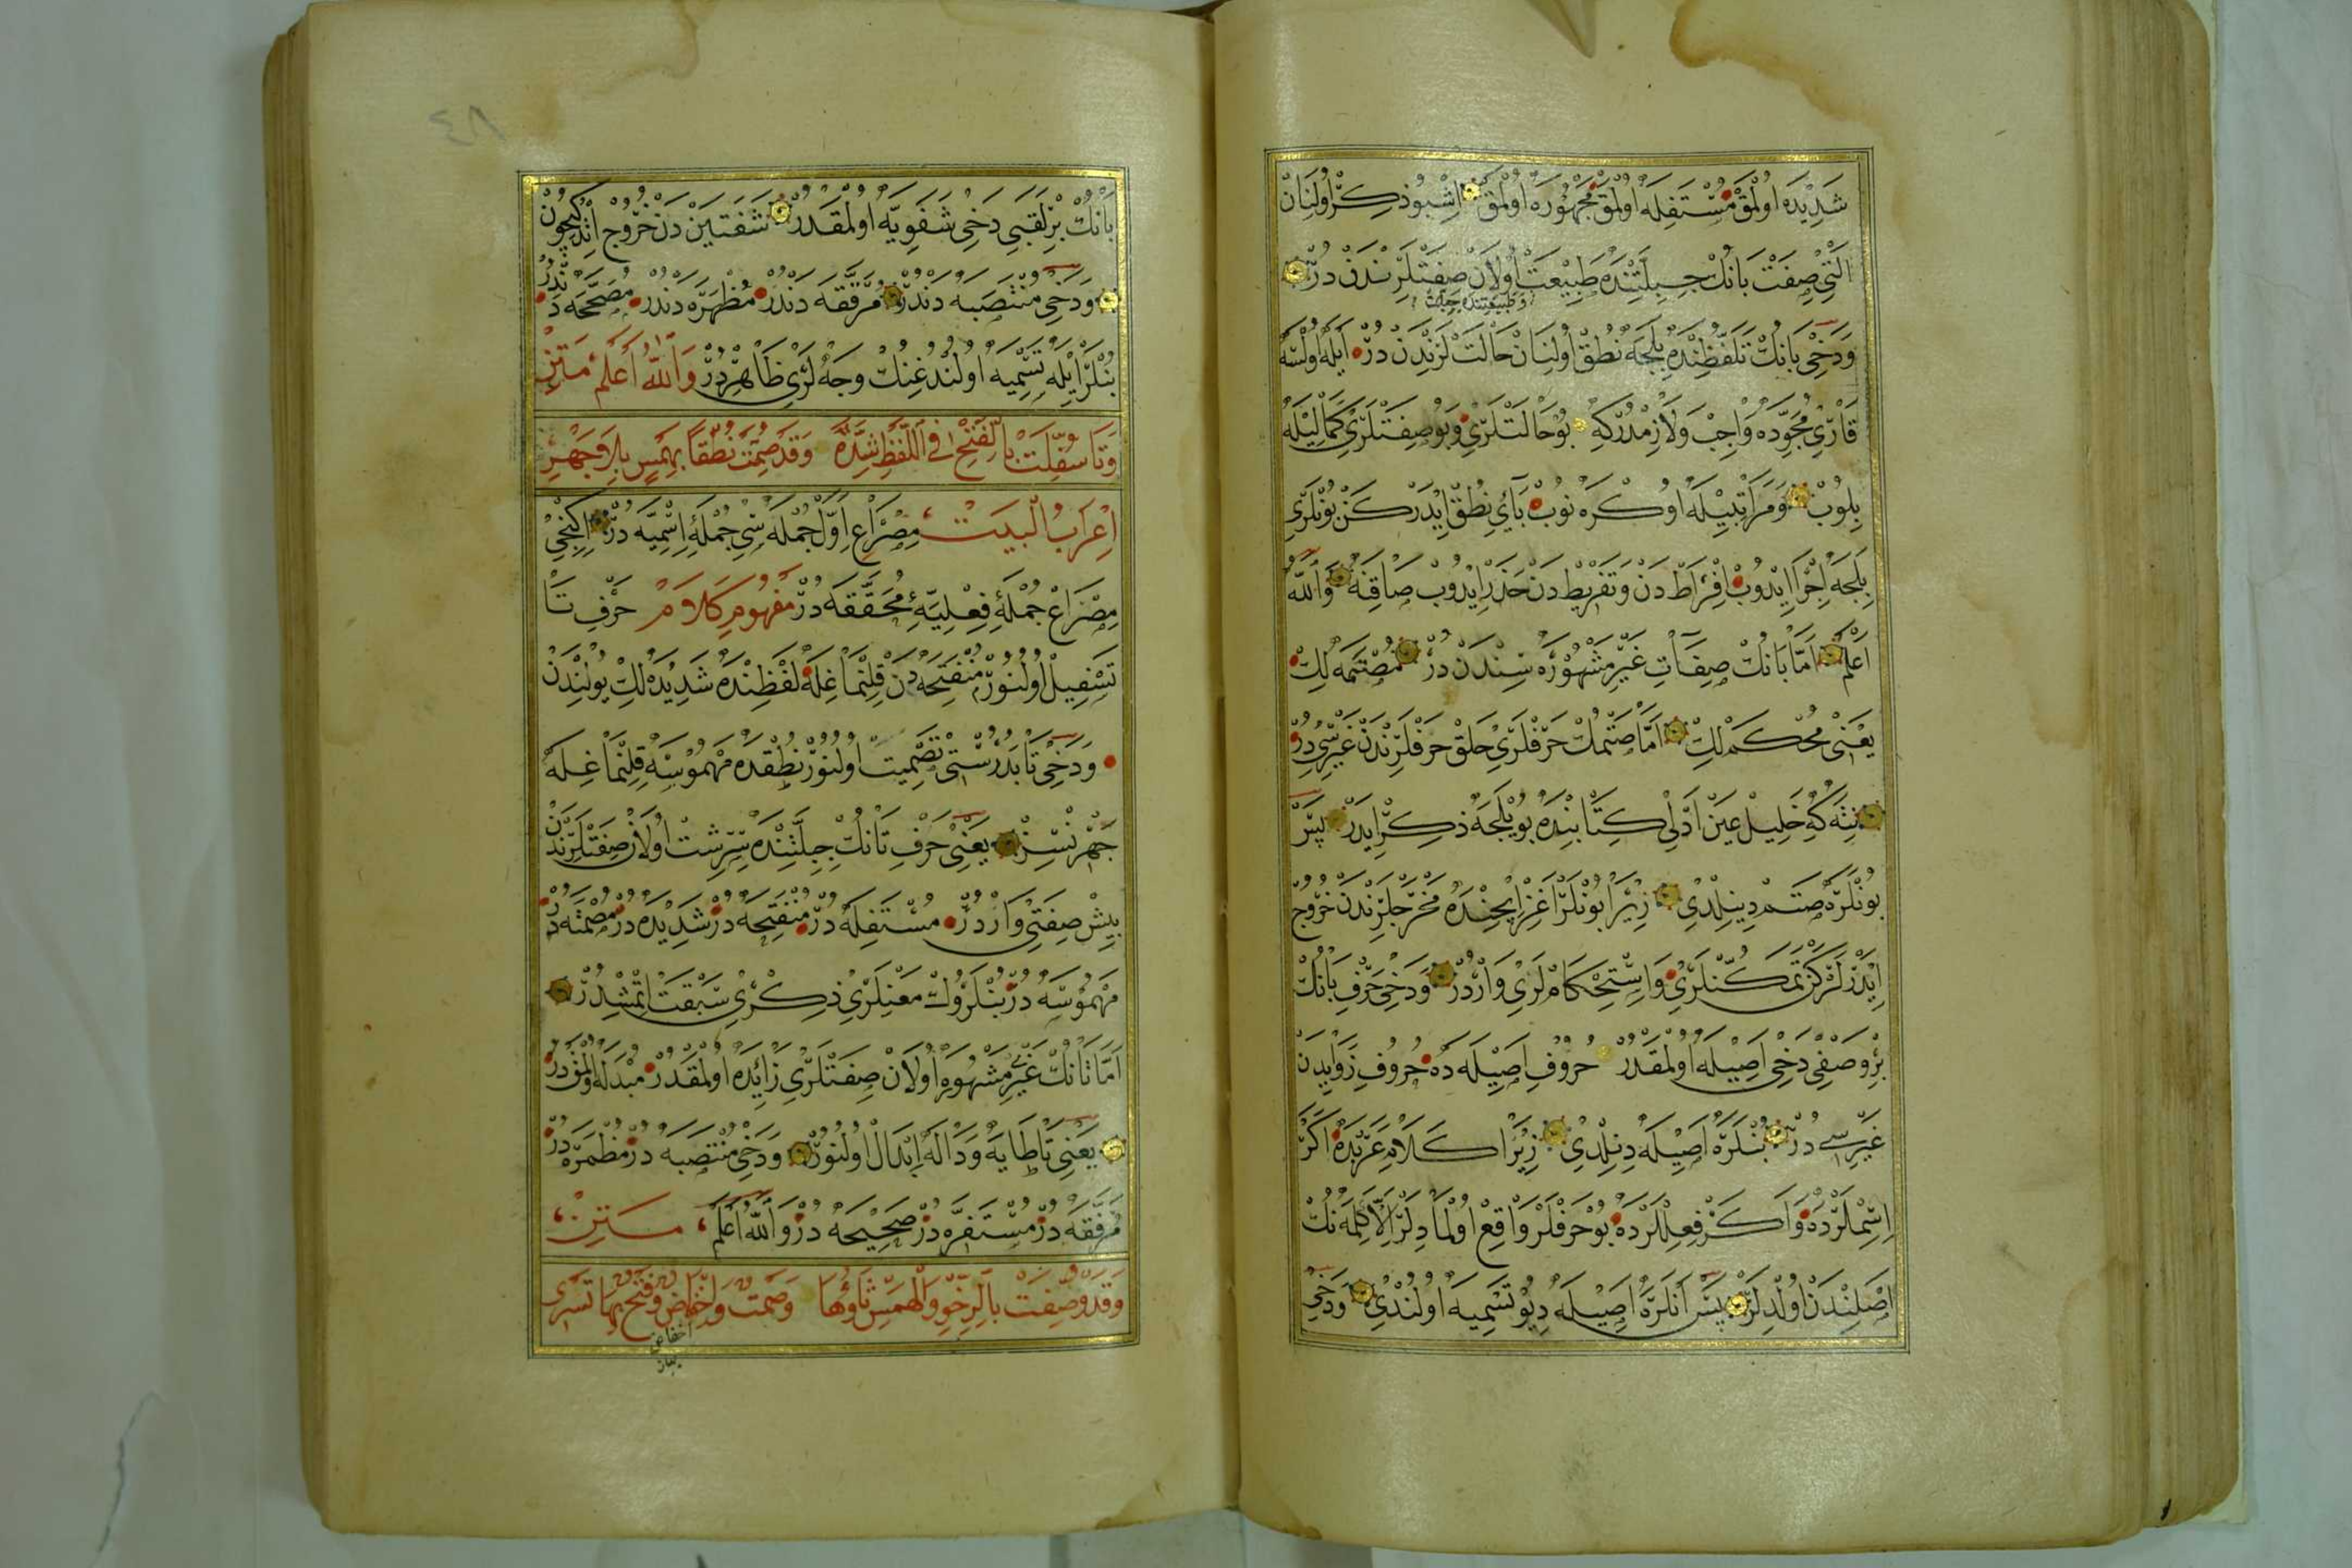 شَدِيدَه اُولْمَقْ مُسْتَفِلَه اُولْمَقْ مَجْهُورَه اُولْمَقْ اِشْبُو ذِكِرْ اُولُنَانْ
اَلْتِى صِفَتْ بَانُكْ جِبِلَّتِنْدَه طَبِيعَتْ اُولَانْ صِفَتْلَرِنْدَنْ دُرْ
وَدَخِى بَانُكْ تَلَفُّظِنْدَه بِلَجَه نُطُقْ اُولُنَانْ حَالَتْلَرِنْدَنْ دُرْ اَيْلَه اُولْسَه
قَارِئِ مُجَوِّدَه وَاجِبْ وَلَازِمْدُرْكِه بُو حَالَتْلَرِى وَبُو صِفَتْلَرِى كَمَالِيلَه
بِلُوبْ وَمَرَاتِبِيلَه اُوكْرَه نُوبْ بَايِى نُطُقْ اِيدَرْكَنْ بُونْلَرِى
بِلَجَه اِجْرَا اِيدُوبْ اِفْرَاطْ دَنْ وَتَفْرِيطْ دَنْ حَذَرْ اِيدُوبْ صَاقِنَه وَاللّٰهُ
اَعْلَمُ اَمَّا بَانُكْ صِفَاتِ غَيْرِ مَشْهُورَه سِنْدَنْ دُرْ مُصْتَمَه لِكْ
يَعْنِى مُحْكَمْ لِكْ اَمَّا صَتْمُكْ حَرْفْلَرِى حَلَقْ حَرْفْلَرِنْدَنْ غَيْرِيسِى دُرْ
نِتَه كِه خَلِيلْ عَيْنْ اَدْلِى كِتَابِنْدَه بُويْلَجَه ذِكِرْ اِيدَرْ پَسْ
بُونْلَرَه صَتَمْ دِينِلْدِى زِيرَا بُونْلَرْ اَغِزْ اِيچِنْدَه مَخْرَجْلَرِنْدَنْ خُرُوجْ
اِيدَرْلَرْكَنْ تَمَكُّنْلَرِى وَاسْتِحْكَامْلَرِى وَارْدُرْ وَدَخِى حَرْفِ بَانُكْ
بِرْ وَصْفِى دَخِى اَصِيلَه اُولْمَقْدُرْ حُرُوفِ اَصِيلَه دَه حُرُوفِ زَوَايِدَنْ
غَيْرِيسِى دُرْ بُنْلَرَه اَصِيلَه دِنِلْدِى زِيرَا كَلَامِ عَرَبْدَه اَكْثَرْ
اِسِمْلَرْدَه وَاَكْثَرْ فِعِلْلَرْدَه بُو حَرْفْلَرْ وَاقِعْ اُولْمَادِلَرْ اِلَّا كَلِمَه نُكْ
اَصْلِنْدَنْ اُولْدِلَرْ پَسْ اَنْلَرَه اَصِيلَه دِيُو تَسْمِيَه اُولُنْدِى وَدَخِى
٤٨
بَانُكْ بِرْ لَقَبِى دَخِى شَفَوِيَّه اُولْمَقْدُرْ شَفَتَيْنْ دَنْ خُرُوجْ اِتْدُكِيچُونْ
وَدَخِى مُنْتَصِبَه دَنْدُرْ مُرَقَّقَه دَنْدُرْ مُظْهَرَه دَنْدُرْ مُصَحَّحَه دَنْدُرْ
بُنْلَرْ اَيْلَه تَسْمِيَه اُولُنْدُغِنُكْ وَجْهْلَرِى ظَاهِرْدُرْ وَاللّٰهُ اَعْلَمُ مَتِنْ
وَتَا سُفِّلَتْ بِالْفَتْحِ فِى اللَّفْظِ شِدَّةً وَقَدْ صُمِّتَتْ نُطْقًا بِهَمْسٍ بِلَا جَهْرِ
اِعْرَابُ الْبَيَتْ مِصْرَاعِ اَوَّلْ جُمْلَه سِى جُمْلَۀِ اِسْمِيَّه دُرْ اِكِنْجِى
مِصْرَاعْ جُمْلَۀِ فِعْلِيَّۀِ مُحَقَّقَه دُرْ مَفْهُومِ كَلَامْ حَرْفِ تَا
تَسْفِيلْ اُولُنُورْ مُنْفَتِحَه دَنْ قِلِنْمَاغِلَه لَفْظِنْدَه شَدِيدَه لِكْ يُولِنْدَنْ
وَدَخِى تَا بَدُرُسْتِى تَصْمِيتْ اُولُنُورْ نُطْقِدَه مَهْمُوسَه قِلِنْمَاغِلَه
جَهْرِنْسِزْ يَعْنِى حَرْفِ تَانُكْ جِبِلَّتِنْدَه سِرِشْتْ اُولَانْ صِفَتْلَرِنْدَنْ
بِيشْ صِفَتِى وَارْدُرْ مُسْتَفِلَه دُرْ مُنْفَتِحَه دُرْ شَدِيدَه دُرْ مُصْمَتَه دُرْ
مَهْمُوسَه دُرْ بُنْلَرُكْ مَعْنِلَرِى ذِكْرِى سَبْقَتْ اِتْمِشْدُرْ
اَمَّا تَانُكْ غَيْرِ مَشْهُورَه اُولَانْ صِفَتْلَرِى زَائِدَه اُولْمَقْدُرْ مُبْدَلَه اُولْمَقْدُرْ
يَعْنِى تَا طَايَه وَدَالَه اِبْدَالْ اُولُنُورْ وَدَخِى مُنْتَصِبَه دُرْ مُظْمَرَه دُرْ
مُرَقَّقَه دُرْ مُسْتَفِرَّه دُرْ صَحِيحَه دُرْ وَاللّٰهُ اَعْلَمُ مَتِنْ
وَقَدْ وُصِفَتْ بِالرِّخْوِ وَالْهَمْسِ ثَاؤُهَا وَصَمْتٌ وَاِخْفَاضٌ وَفَتْحٌ بِهَا تَسْرِى